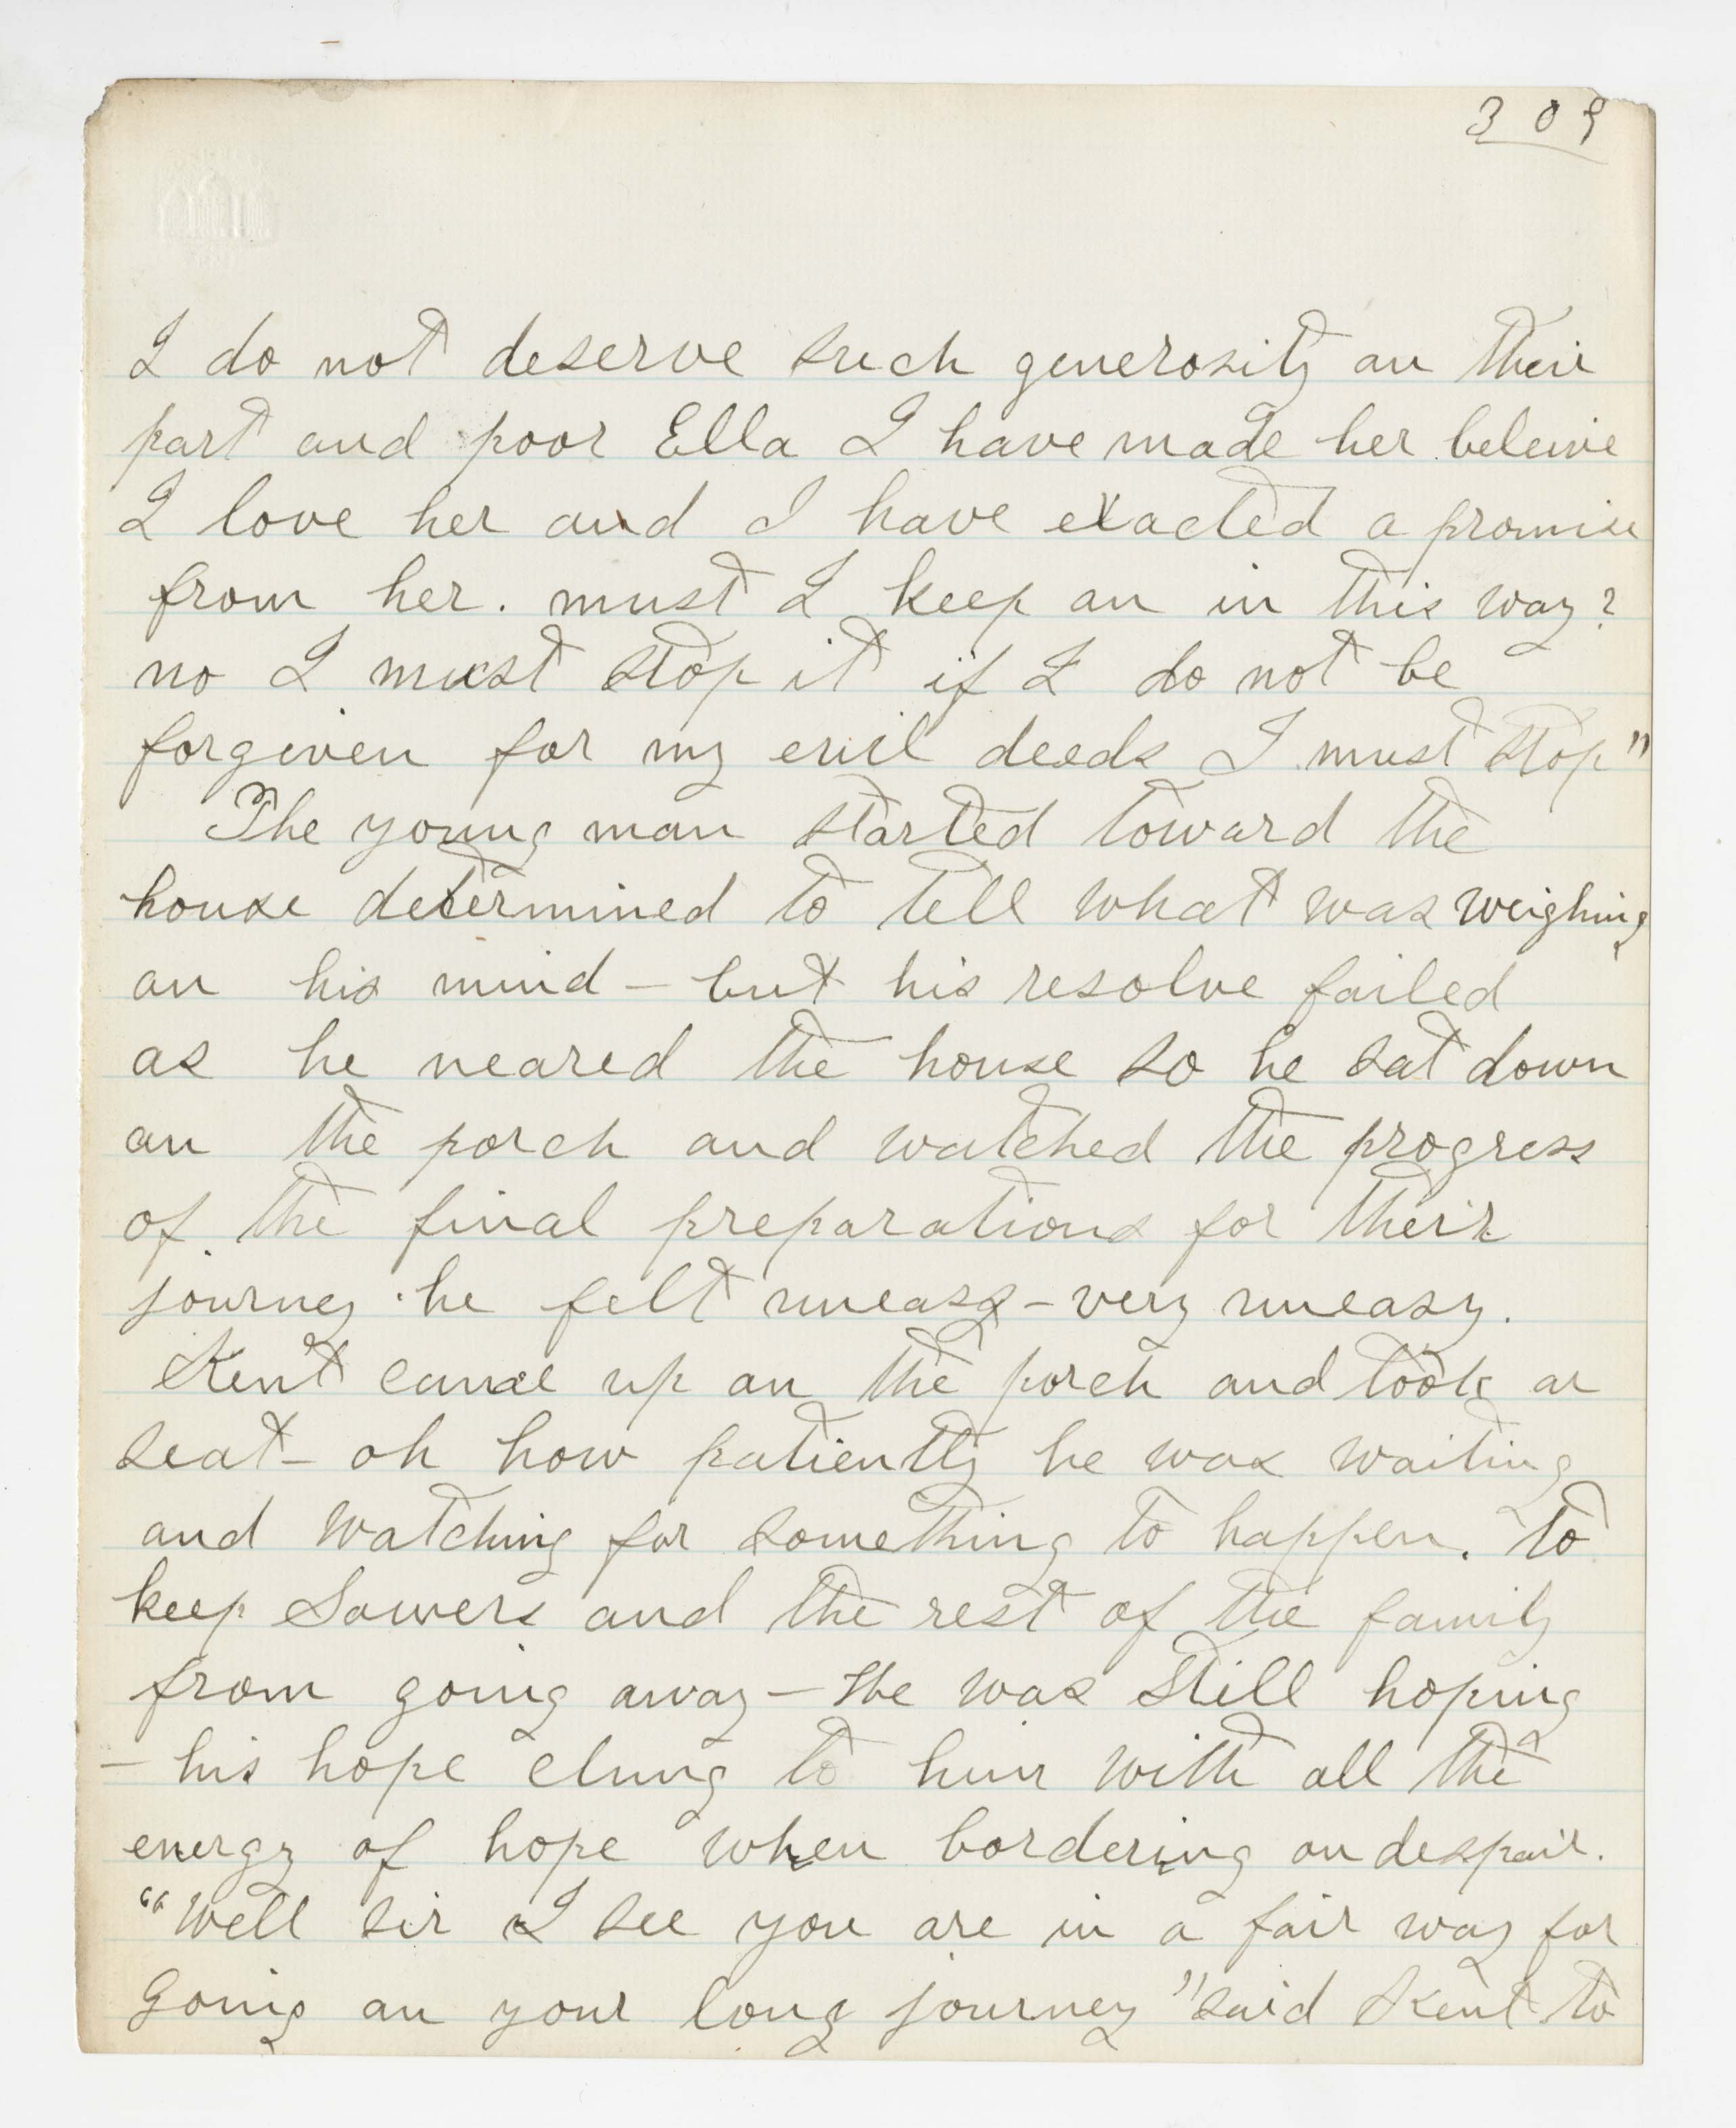 309
I do not deserve such generosity an their
part and poor Ella I have made her beleive
I love her and I have exacted a promise
from her. must I keep an in this way?
no I must stop it if I do not be
forgiven for my evil deeds I must stop"
The young man started toward the
house determined to tell what was weighing
an his mind – but his resolve failed
as he neared the house so he sat down
an the porch and watched the progress
of the final preparations for their
journey. he felt uneasy – very uneasy.
Kent came up an the porch and took a
seat – oh how patiently he was waiting
and watching for something to happen. to
keep Sowers and the rest of the family
from going away – He was still hoping
– his hope clung to him with all the
energy of hope when bordering on despair.
"Well sir I see you are in a fair way for
going an your long journey" said Kent to